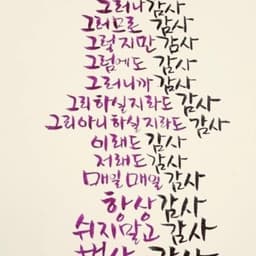 그러나 감사
그러므로 감사
그렇지만 감사
그럼에도 감사
그러니까 감사
그리하실지라도 감사
그리아니하실지라도 감사
이래도 감사
저래도 감사
매일매일 감사
항상 감사
쉬지말고 감사
감사